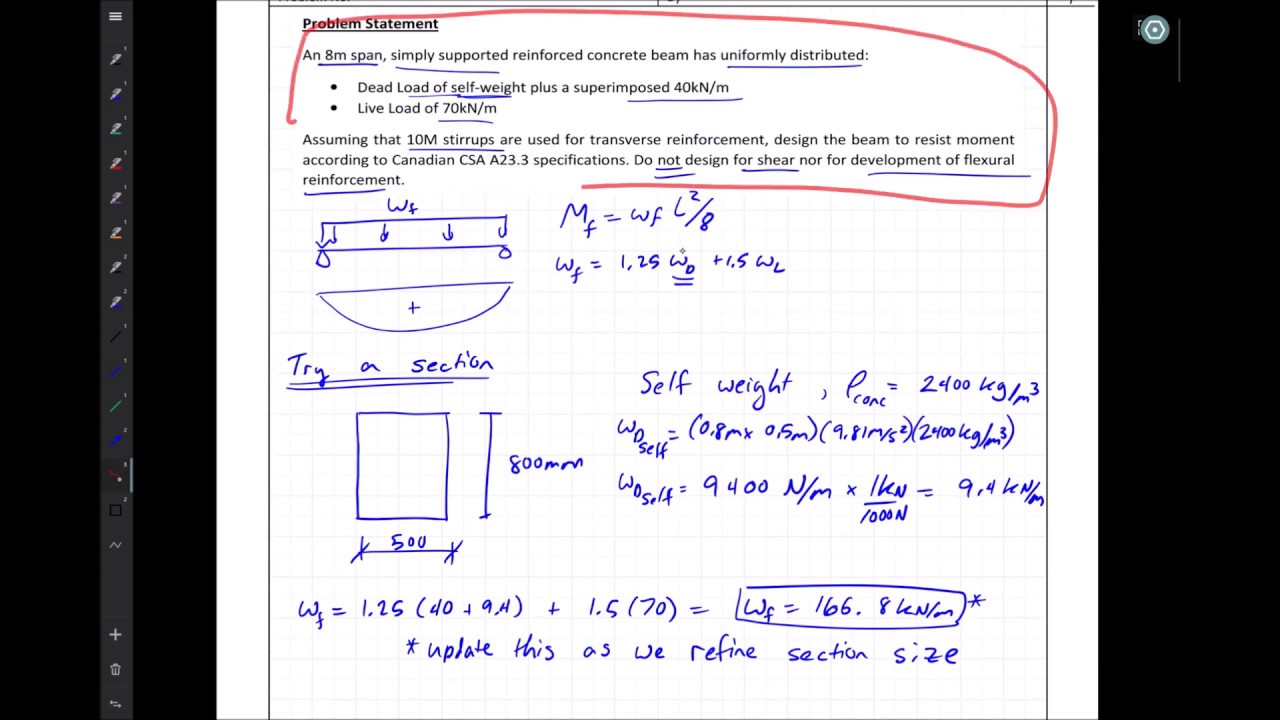 Problem Statement
An 8m span, simply supported reinforced concrete beam has uniformly distributed:
• Dead Load of self-weight plus a superimposed 40kN/m
• Live Load of 70kN/m
Assuming that 10M stirrups are used for transverse reinforcement, design the beam to resist moment
according to Canadian CSA A23.3 specifications. Do not design for shear nor for development of flexural
reinforcement.
Wf
Mf = wf L²/8
wf = 1.25 wD + 1.5 wL
+
Try a section
Self weight, ρconc = 2400 kg/m³
wDself = (0.8m x 0.5m)(9.81m/s²)(2400kg/m³)
800mm
wDself = 9400 N/m x 1kN/1000N = 9.4 kN/m
500
wf = 1.25 (40 + 9.4) + 1.5 (70) = wf = 166.8 kN/m *
* update this as we refine section size